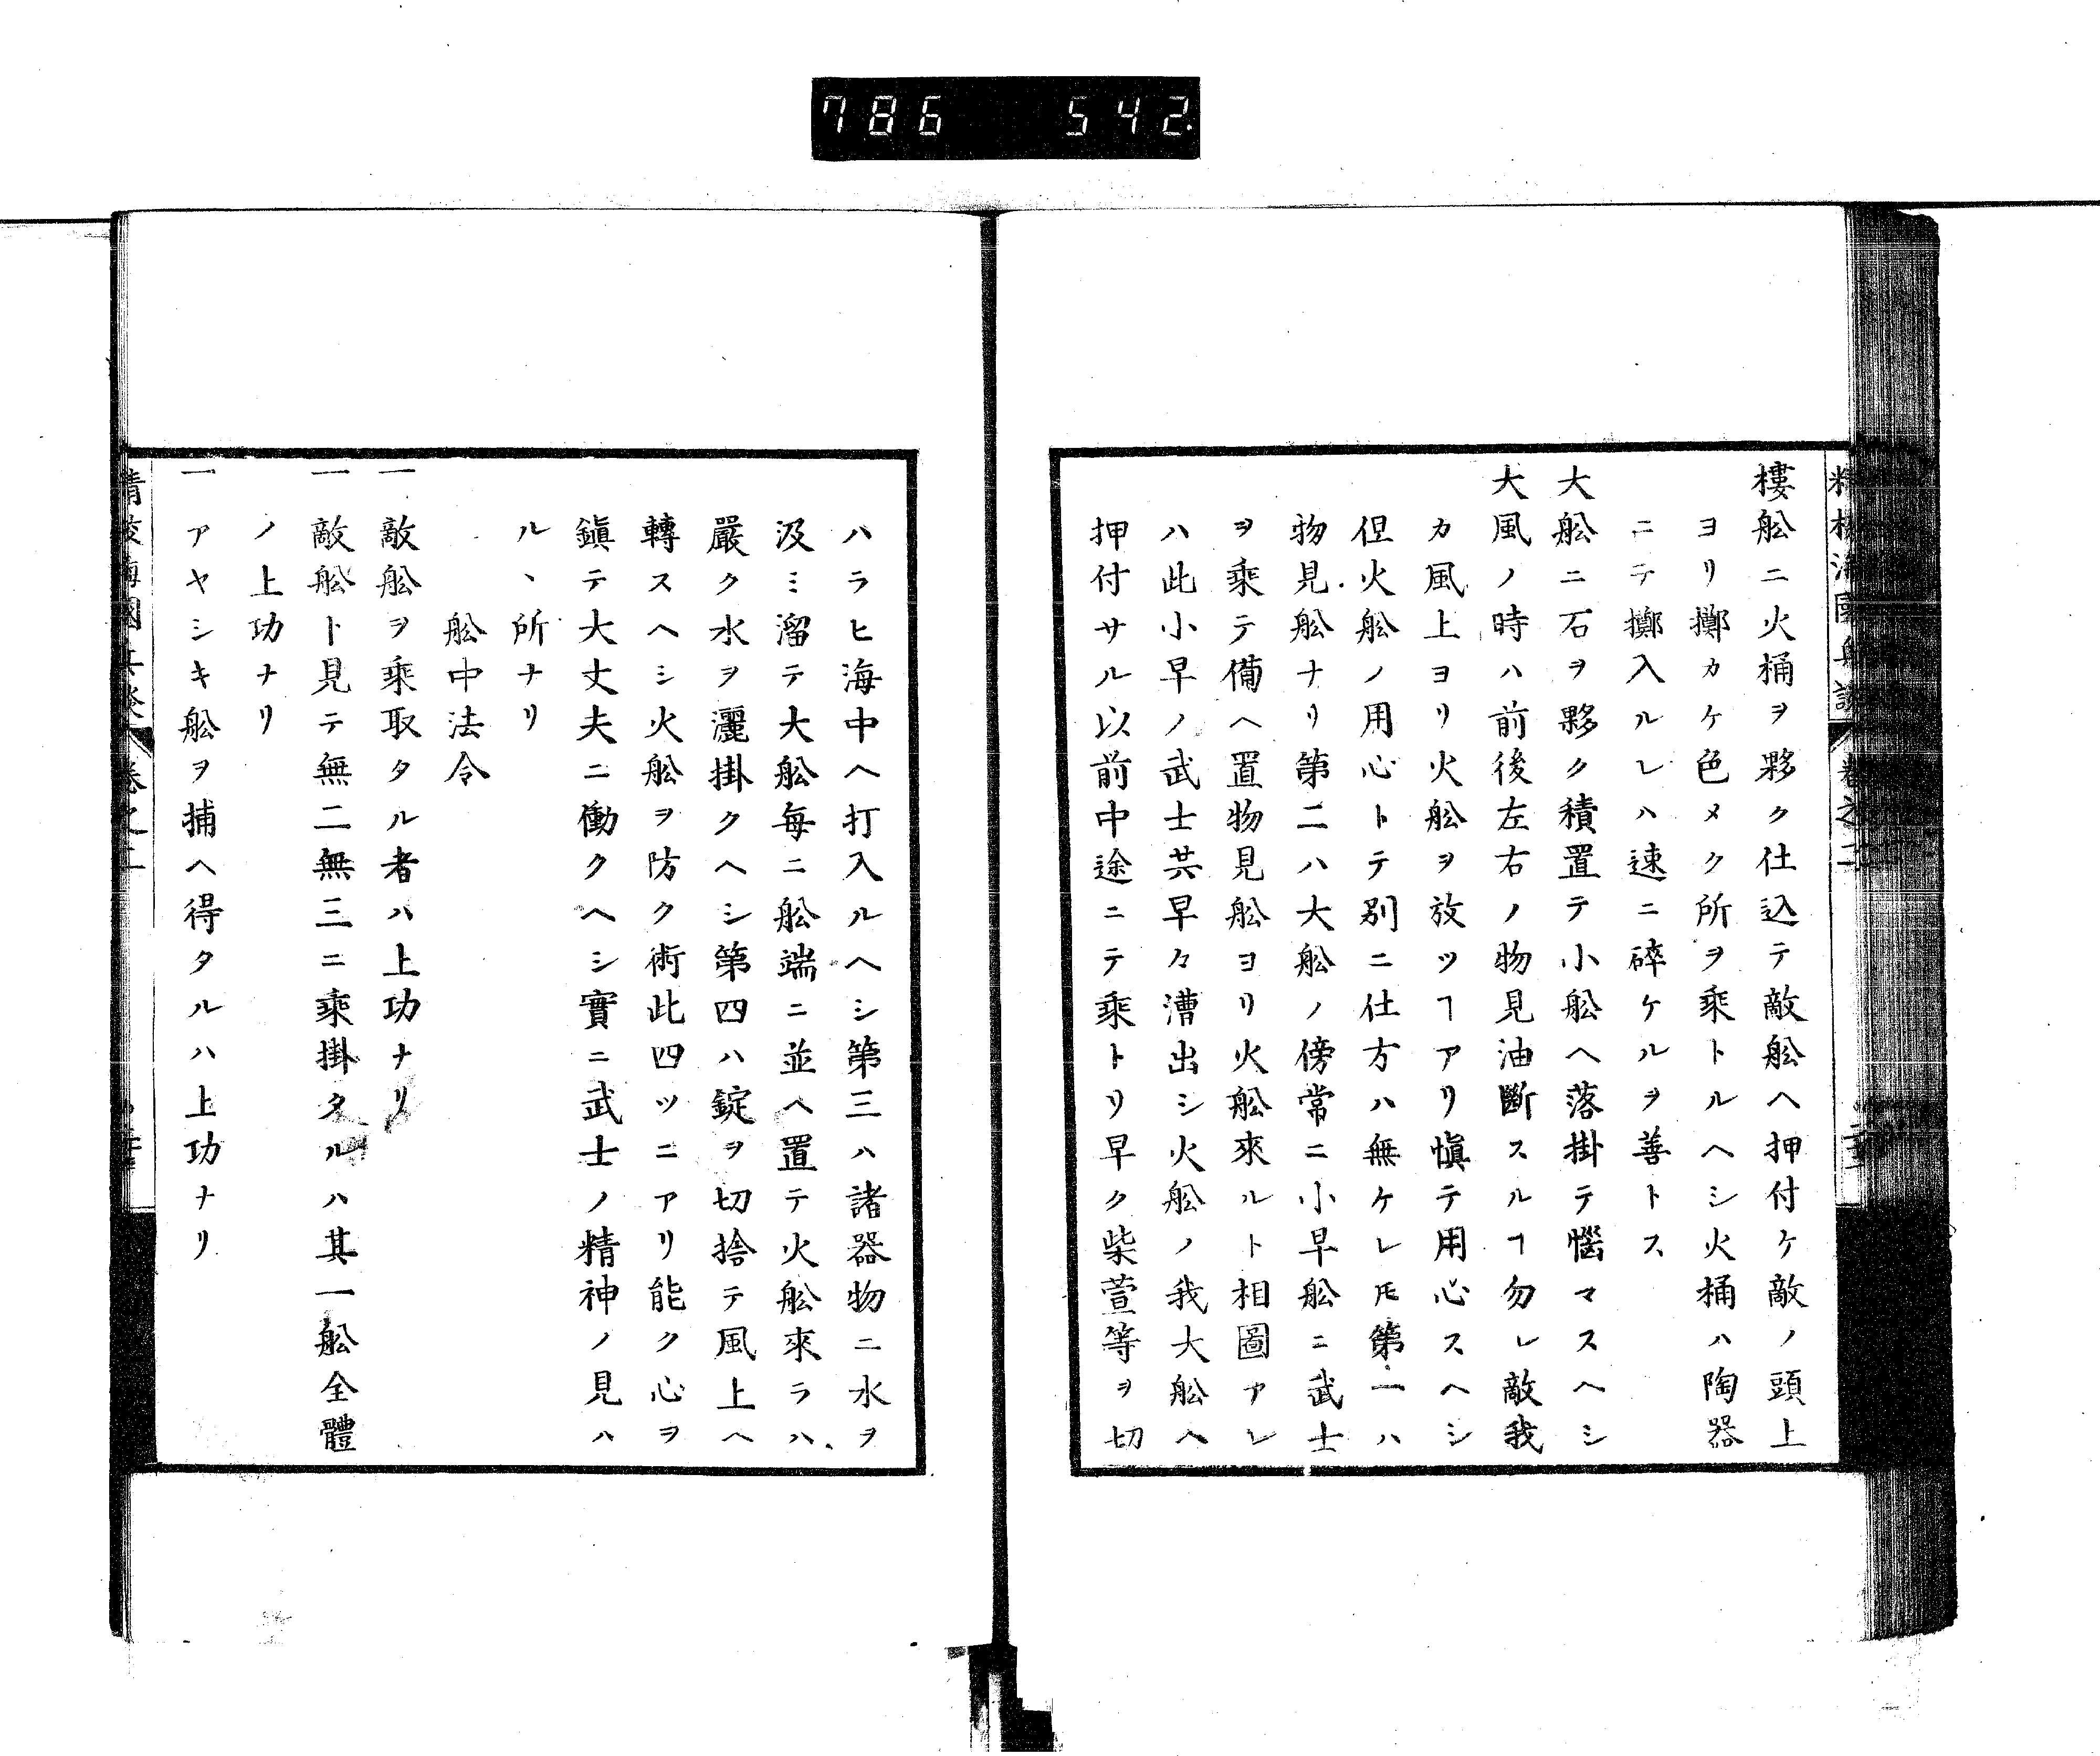 786 542
樓舩ニ火桶ヲ夥ク仕込テ敵舩ヘ押付ケ敵ノ頭上
ヨリ擲カケ色メク所ヲ乘トルヘシ火桶ハ陶器
ニテ擲入ルレハ速ニ碎ケルヲ善トス
大舩ニ石ヲ夥ク積置テ小舩ヘ落掛テ惱マスヘシ
大風ノ時ハ前後左右ノ物見油斷スルヿ勿レ敵我
カ風上ヨリ火舩ヲ放ツヿアリ愼テ用心スヘシ
但火舩ノ用心トテ別ニ仕方ハ無ケレ𪜈第一ハ
物見舩ナリ第二ハ大舩ノ傍常ニ小早舩ニ武士
ヲ乘テ備ヘ置物見舩ヨリ火舩來ルト相圖アレ
ハ此小早ノ武士共早々漕出シ火舩ノ我大舩ヘ
押付サル以前中途ニテ乘トリ早ク柴萱等ヲ切
ハラヒ海中ヘ打入ルヘシ第三ハ諸器物ニ水ヲ
汲ミ溜テ大舩毎ニ舩端ニ並ヘ置テ火舩來ラハ
嚴ク水ヲ灑掛クヘシ第四ハ錠ヲ切捨テ風上ヘ
轉スヘシ火舩ヲ防ク術此四ツニアリ能ク心ヲ
鎭テ大丈夫ニ働クヘシ實ニ武士ノ精神ノ見ハ
ルヽ所ナリ
舩中法令
一敵舩ヲ乘取タル者ハ上功ナリ
一敵舩ト見テ無二無三ニ乘掛タルハ其一舩全體
ノ上功ナリ
一アヤシキ舩ヲ捕ヘ得タルハ上功ナリ